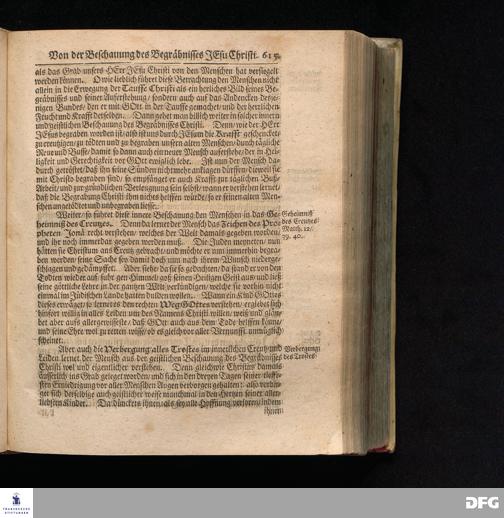 Von der Beschauung des Begräbnisses JEsu Christi. 615.
als das Grab unsers HErr JEsu Christi von den Menschen hat versiegelt
werden können. O wie lieblich führet diese Betrachtung den Menschen nicht
allein in die Erwegung der Tauffe Christi als ein herliches Bild seines Be-
gräbnisses und seiner Aufferstehung/ sondern auch auf das Andencken desje-
nigen Bundes/ den er mit GOtt in der Tauffe gemachet/ und der herrlichen
Frucht und Krafft derselben. Dann gehet man billich weiter in solcher innern
und geistlichen Beschauung des Begräbnisses Christi. Denn/ wie der HErr
JEsus begraben worden ist/ also ist uns durch JEsum die Krafft geschencket/
zu creutzigen/ zu tödten und zu begraben unsern alten Menschen/ durch tägliche
Reue und Busse/ damit so dann auch ein neuer Mensch aufferstehe/ der in Hei-
ligkeit und Gerechtigkeit vor GOtt ewiglich lebe. Ist nun der Mensch da-
durch getröstet/ daß ihn seine Sünden nicht mehr anklagen dürffen/ dieweil sie
mit Christo begraben sind/ so empfänget er auch Krafft zur täglichen Buß-
Arbeit/ und zur gründlichen Verleugnung sein selbst/ wann er verstehen lernet/
daß die Begrabung Christi ihm nichts helffen würde/ so er seinen alten Men-
schen ungetödtet und unbegraben liesse.
Weiter/ so führet diese innere Beschauung den Menschen in das Ge-
heimniß des Creutzes. Denn da lernet der Mensch das Zeichen des Pro-
pheten Jonä recht verstehen/ welches der Welt damals gegeben worden/
und ihr noch immerdar gegeben werden muß. Die Juden meyneten/ nun
hätten sie Christum ans Creutz gebracht/ und möchte er nun immerhin begra-
ben werden/ seine Sache sey damit doch nun nach ihrem Wunsch niederge-
schlagen und gedämpffet. Aber siehe/ da sie es gedachten/ da stand er von den
Todten wieder auf/ fuhr gen Himmel/ goß seinen Heiligen Geist aus/ und ließ
seine göttliche Lehre in der gantzen Welt verkündigen/ welche sie vorhin nicht
einmal im Jüdischen Lande hatten dulden wollen. Wann ein Kind GOttes
dieses erwäget/ so lernet es den rechten Weg GOttes verstehen/ ergiebet sich
hinfort willig in alles Leiden um des Namens Christi willen/ weiß und gläu-
bet aber aufs allergewisseste/ daß GOtt auch aus dem Tode helffen könne/
und seine Ehre wol zu retten wisse/ ob es gleich vor aller Vernunfft unmüglich
scheinet.
Aber auch die Verbergung alles Trostes im innerlichen Creutz und
Leiden lernet der Mensch aus der geistlichen Beschauung des Begräbnisses
Christi wol und eigentlicher verstehen. Denn gleichwie Christus damals
äusserlich ins Grab geleget worden/ und sich in den dreyen Tagen seiner tieffe-
sten Erniedrigung vor aller Menschen Augen verborgen gehalten: also verbir-
get sich derselbige auch geistlicher weise manchmal in den Hertzen seiner aller-
liebsten Kinder. Da düncket es ihnen/ als sey alle Hoffnung verloren/ indem
ihnen
Geheimniß
des Creutzes.
Matth. 12/
39. 40.
Verbergung
des Trostes.
DFG